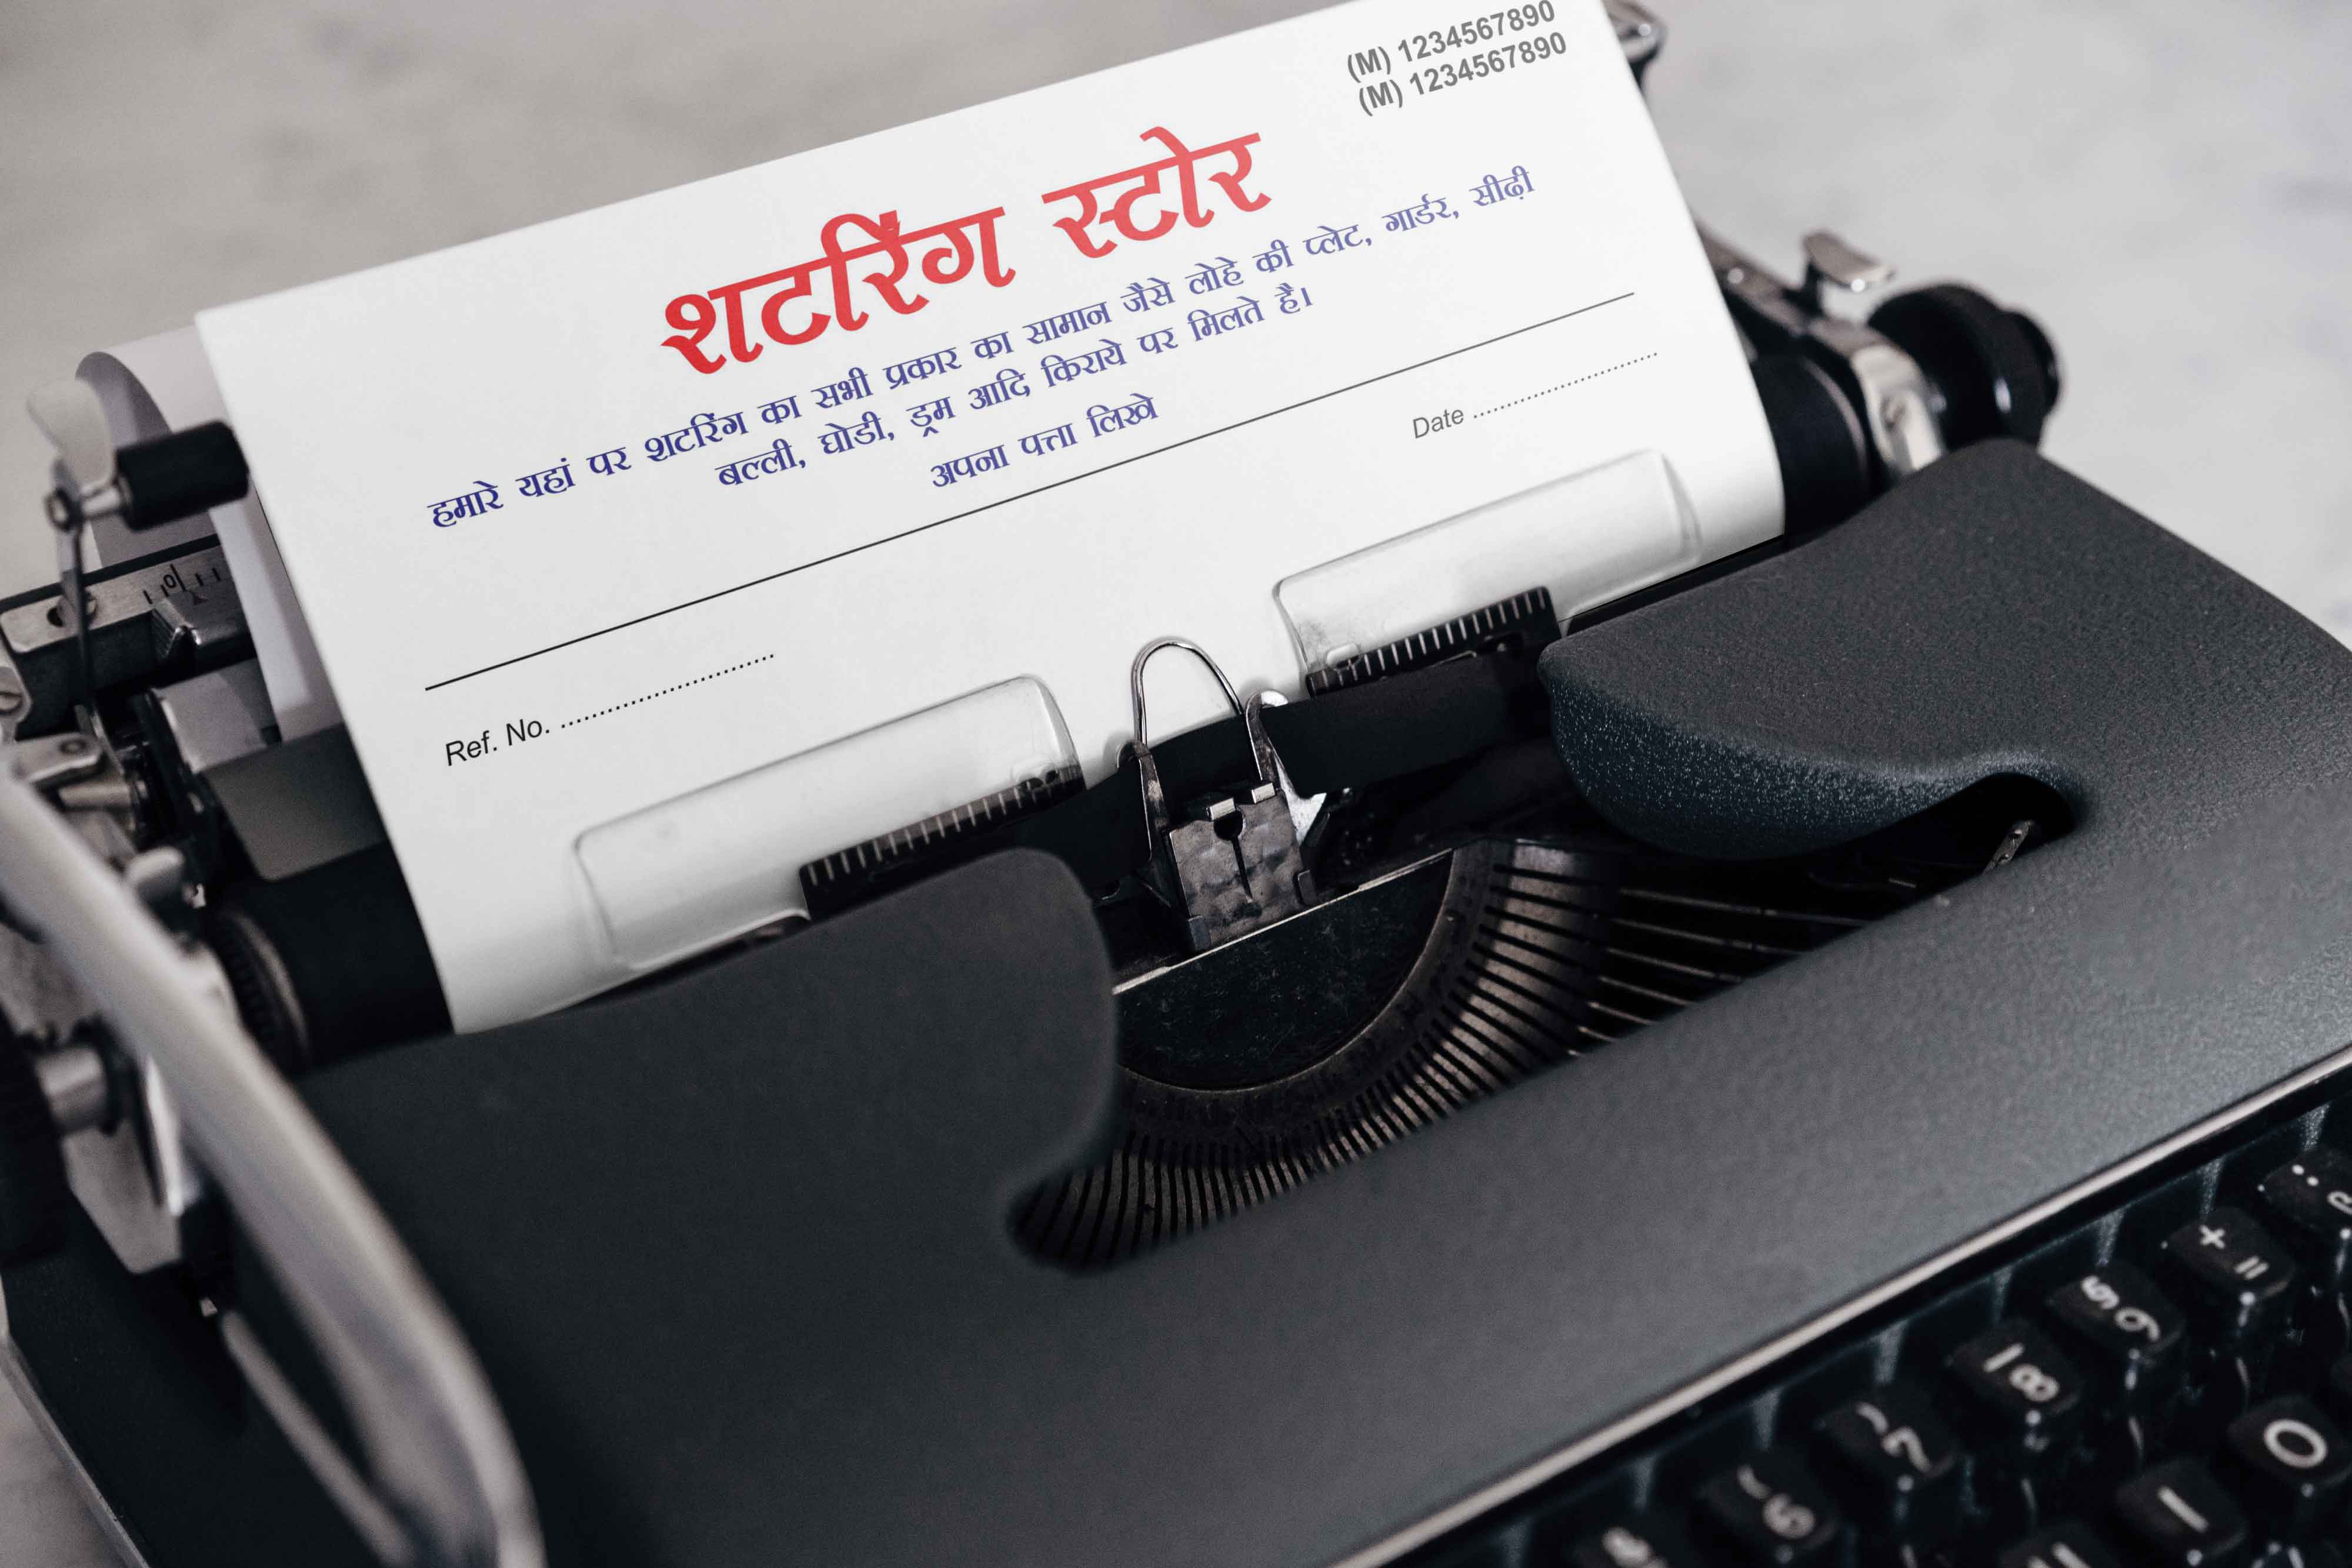 (M) 1234567890
(M) 1234567890
शटरिंग स्टोर
हमारे यहां पर शटरिंग का सभी प्रकार का सामान जैसे लोहे की प्लेट, गार्डर, सीढ़ी
बल्ली, घोडी, ड्रम आदि किराये पर मिलते है।
अपना पत्ता लिखे
Ref. No. ........................... Date ...........................
+ =
9
8
7
0